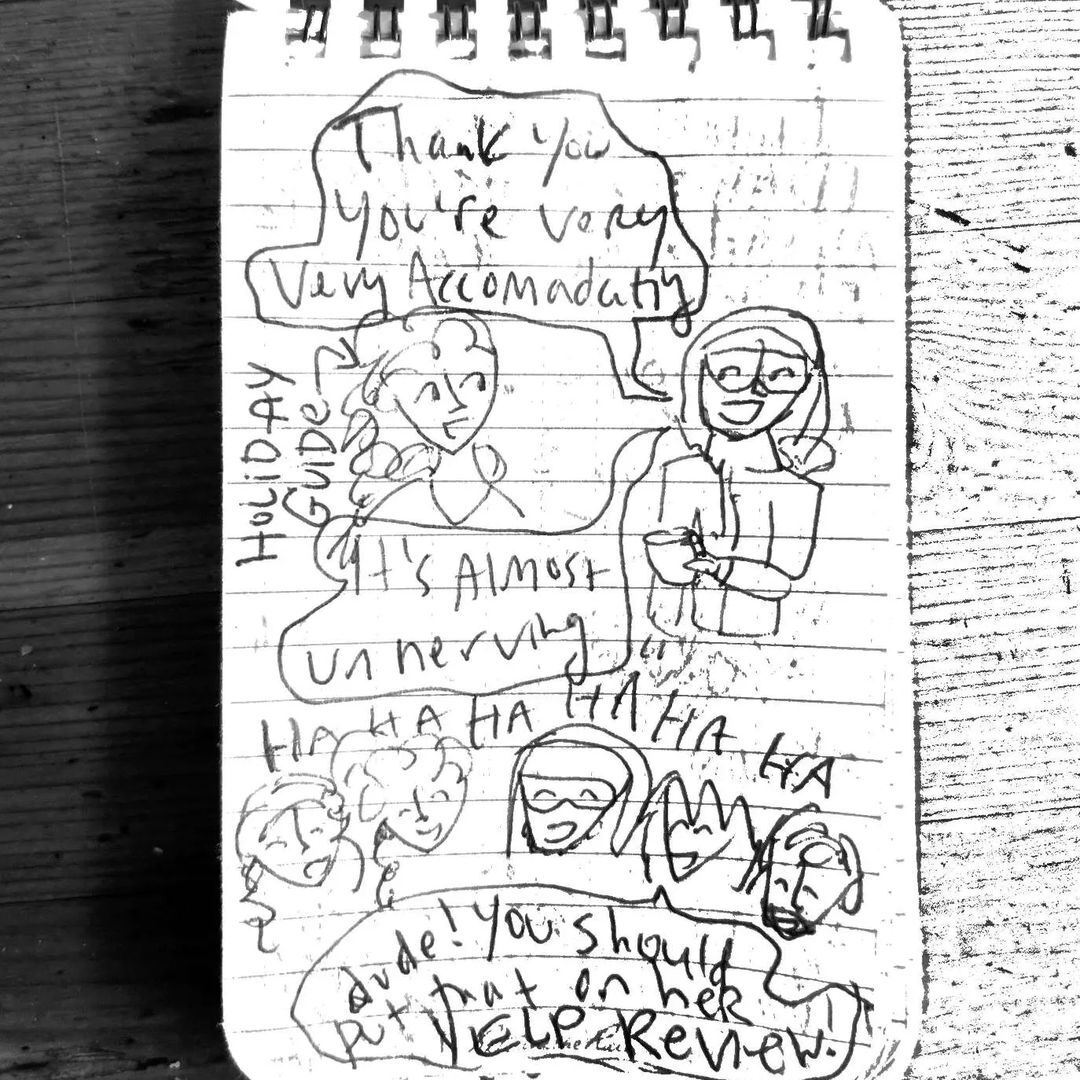 Thank you
you're very
Very Accomadating
HOLIDAY
GUIDE
It's Almost
unnerving
HA HA HA HA HA HA
dude! you should
put that on her
YELP Review.